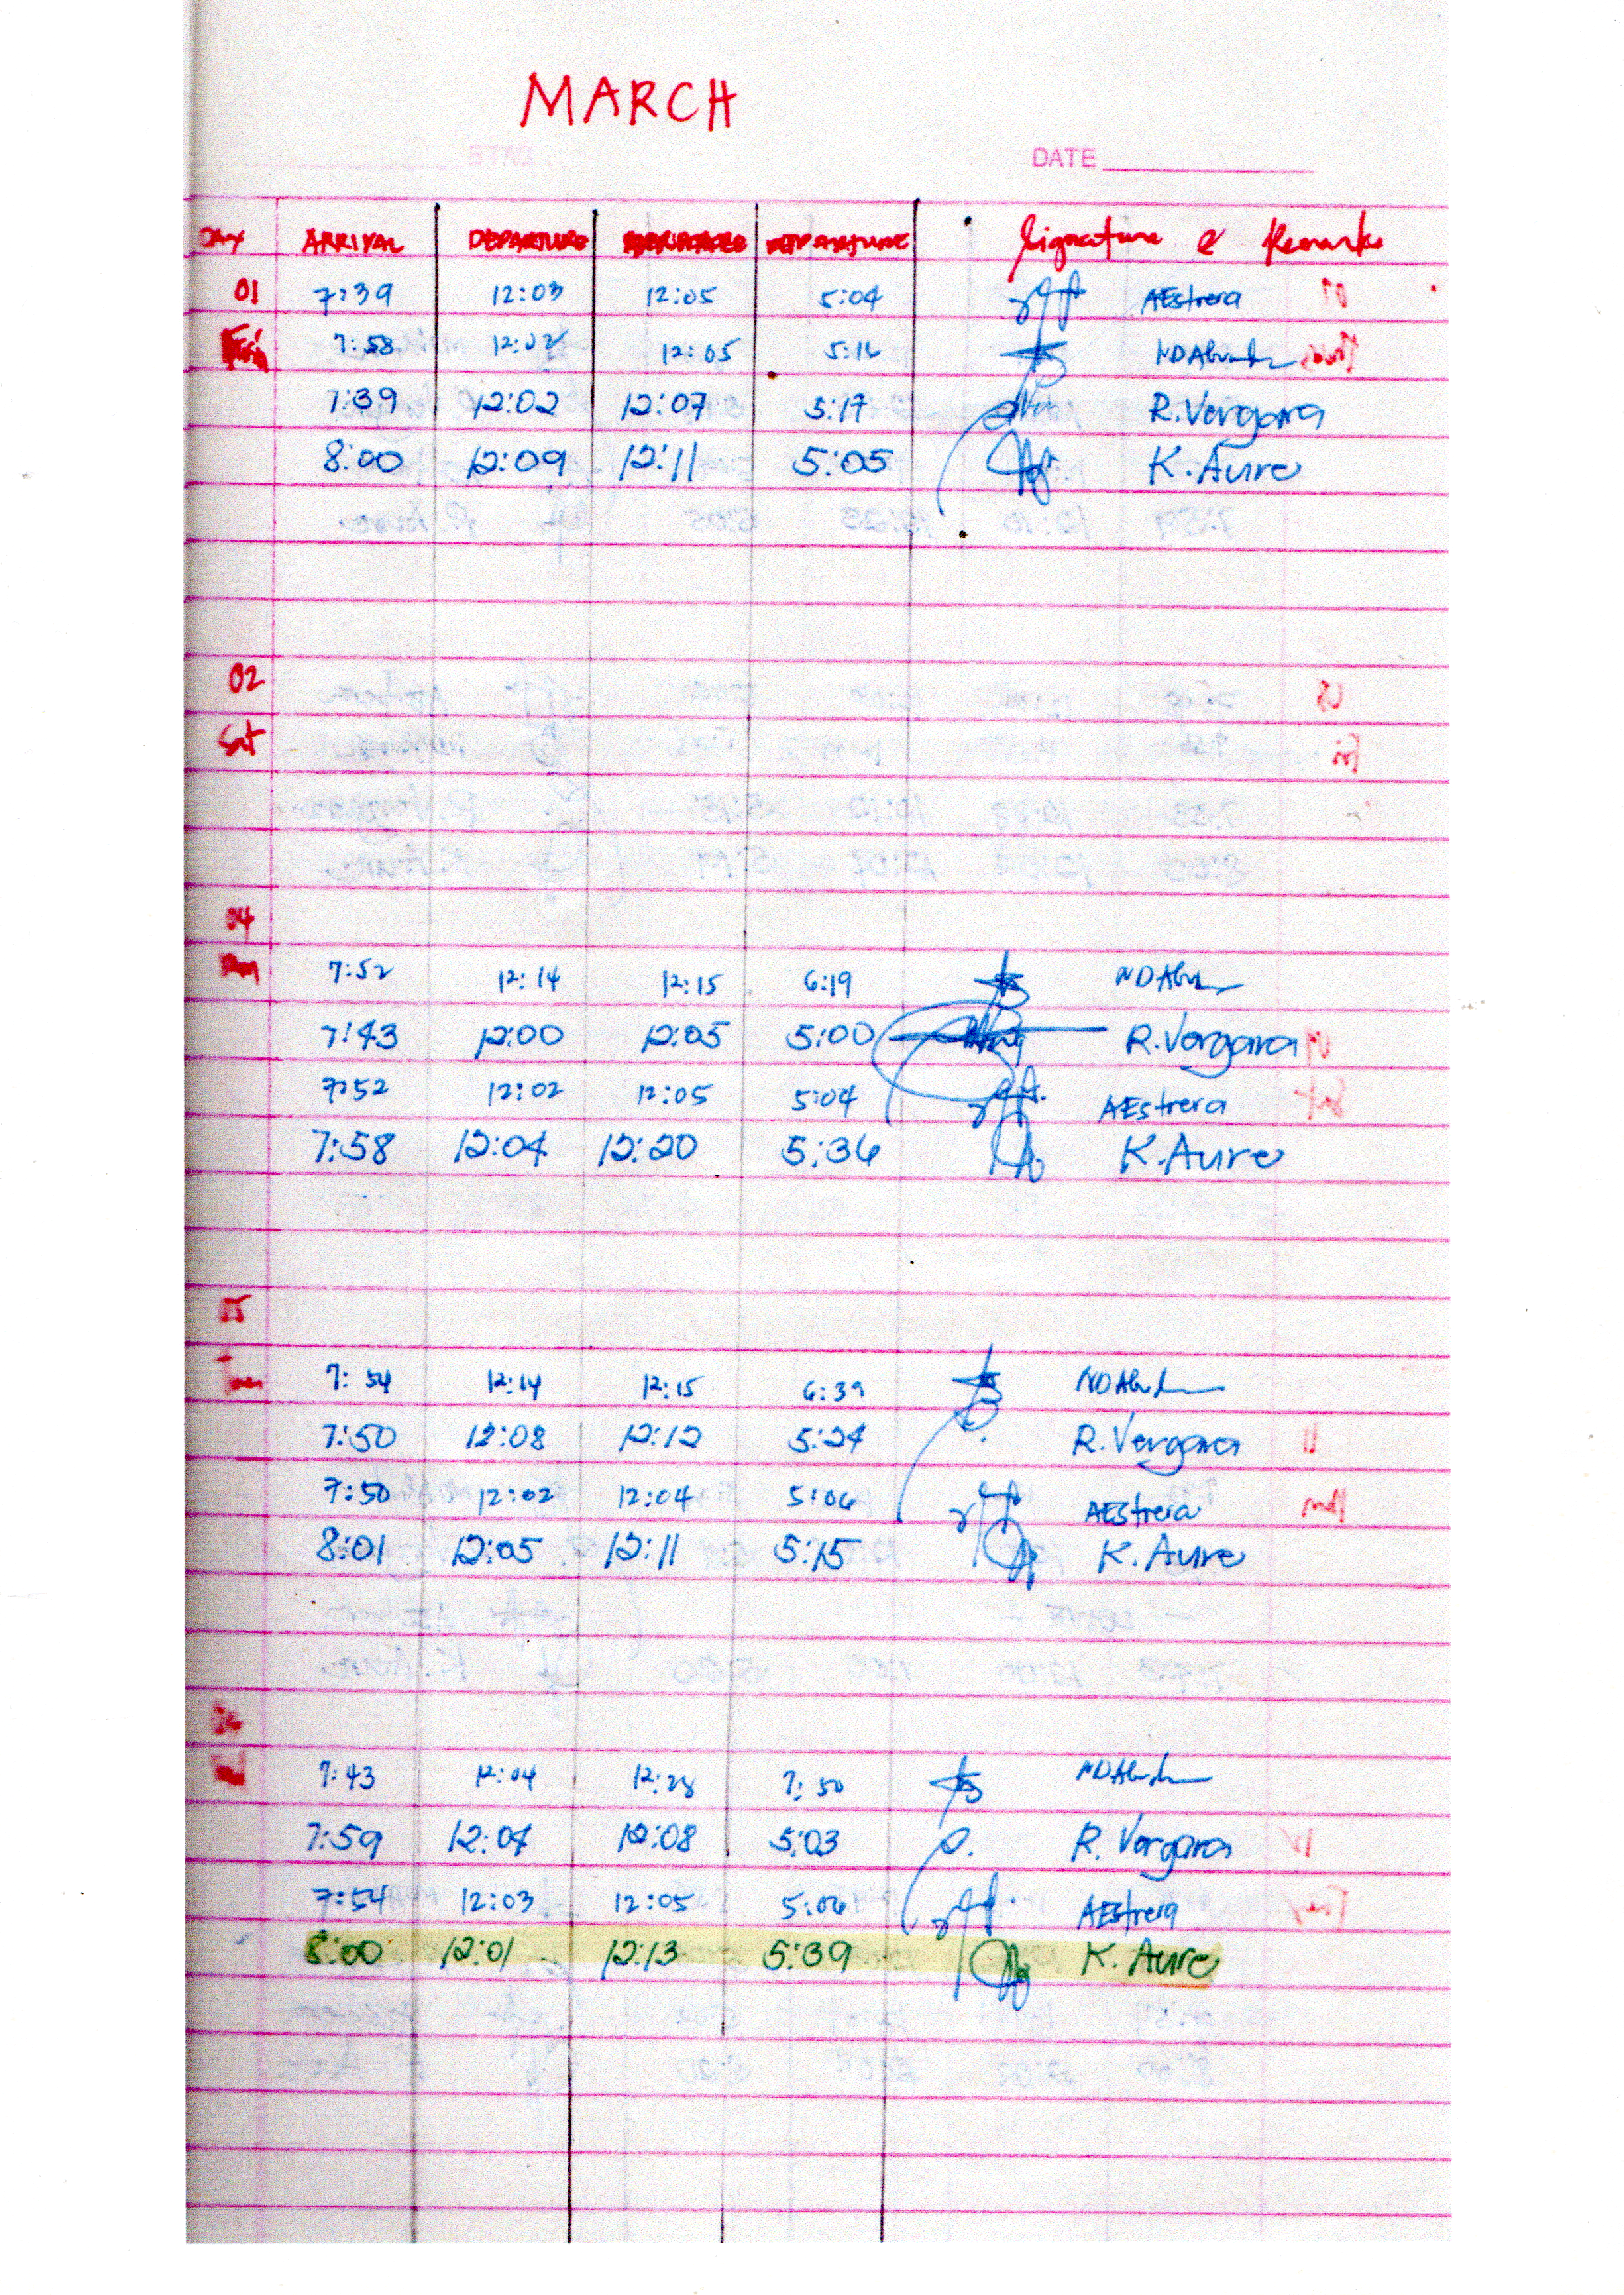 MARCH
DATE
DAY ARRIVAL DEPARTURE DEPARTURE Signature & Remarks
01 7:39 12:03 12:05 5:04 AEstrera
Fri 7:58 12:02 12:05 5:16
7:39 12:02 12:07 5:17 R.Vergara
8:00 12:09 12:11 5:05 K.Aure
02
Sat
04
7:52 12:14 12:15 6:19
7:43 12:00 12:05 5:00 R.Vergara
7:52 12:02 12:05 5:04 AEstrera
7:58 12:04 12:20 5:36 K.Aure
05
7:54 12:14 12:15 6:39
7:50 12:08 12:12 5:24 R.Vergara
7:50 12:02 12:04 5:06 AEstrera
8:01 12:05 12:11 5:15 K.Aure
7:43 12:04 12:28 7:50
7:59 12:04 12:08 5:03 R.Vergara
7:54 12:03 12:05 5:06 AEstrera
8:00 12:01 12:13 5:39 K.Aure